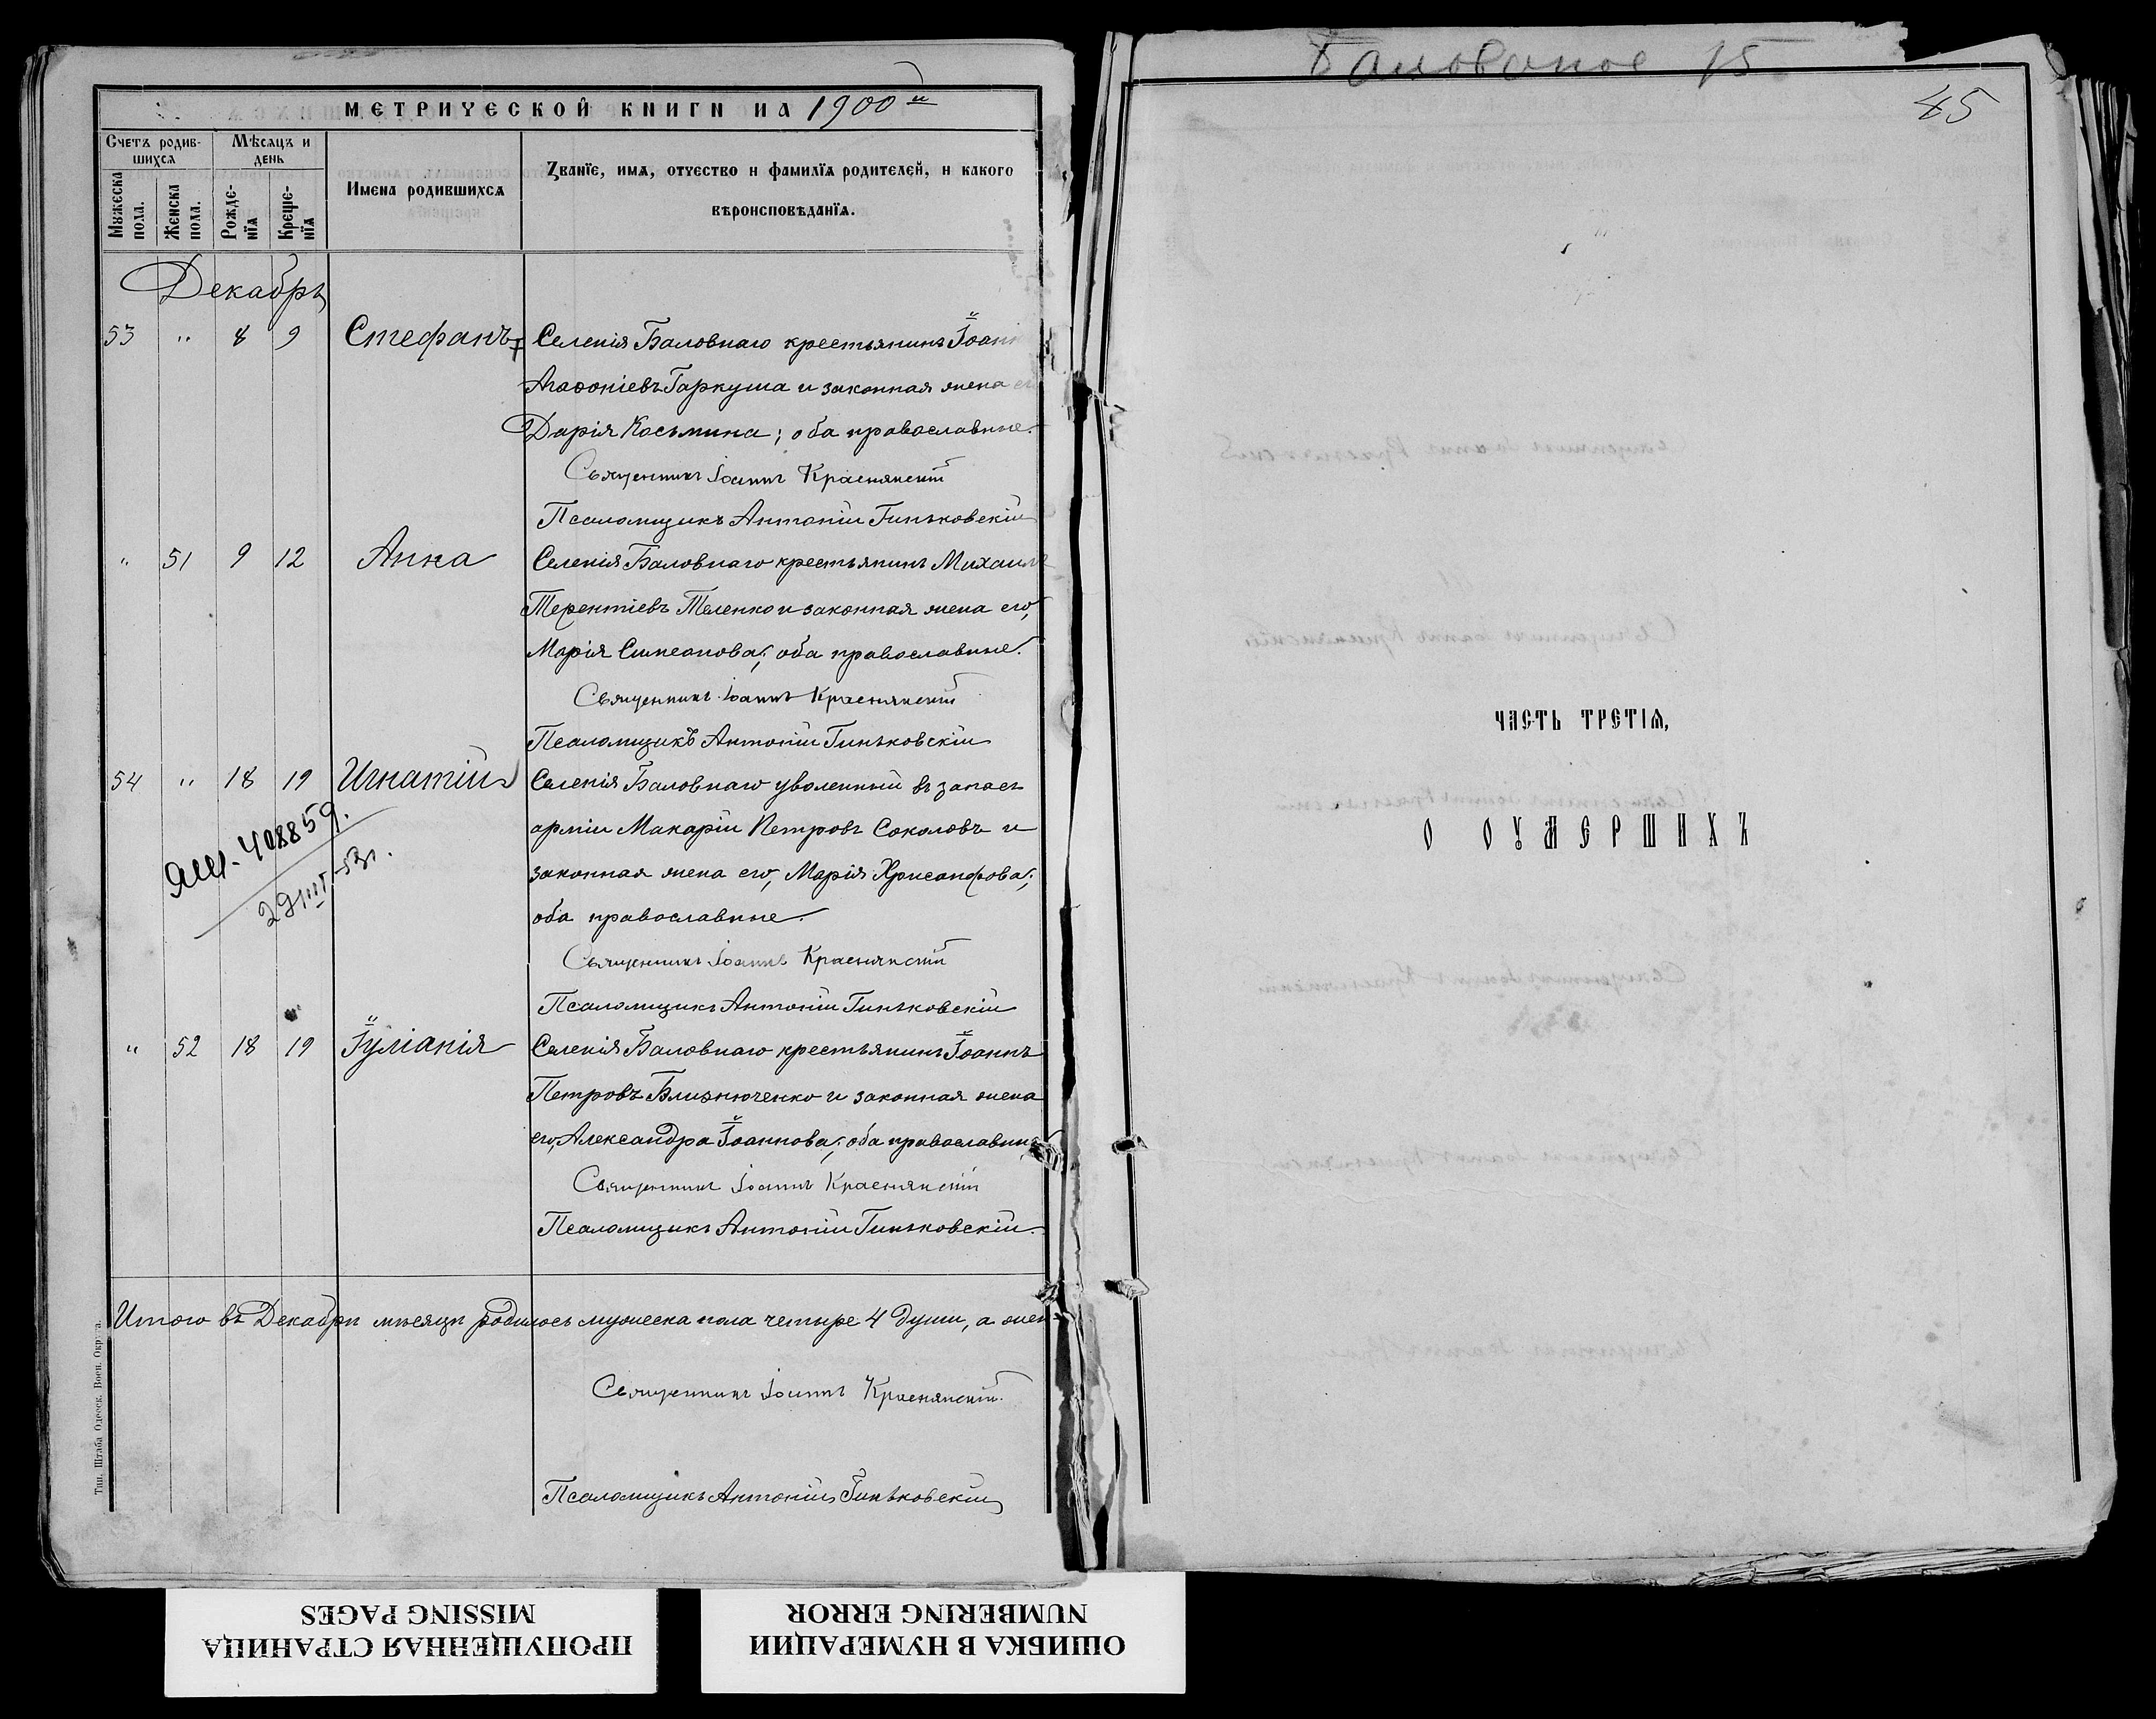 МЕТРИЧЕСКОЙ КНИГИ НА 1900 й
Счетъ родившихся
Мѣсяцъ и день
Мужеска пола.
Женска пола.
Рожденїя
Крещенїя
Имена родившихся
Званїе, имя, отчество и фамилїя родителей, и какого
вѣроисповѣданїя.
Декабрь
53 " 8 9 Стефанъ Селенія Баловнаго крестьянинъ Іоаннъ
Агаѳоніевъ Гаркуша и законная жена его
Дарія Косьмина; оба православные.
Священникъ Іоаннъ Краснянскій
Псаломщикъ Антоній Гиньковскій
" 51 9 12 Анна Селенія Баловнаго крестьянинъ Михаилъ
Терентіевъ Теленко и законная жена его,
Марія Симеонова; оба православные.
Священникъ Іоаннъ Краснянскій
Псаломщикъ Антоній Гиньковскій
54 " 18 19 Игнатій Селенія Баловнаго уволенный въ запасъ
арміи Макарій Петровъ Соколовъ и
законная жена его, Марія Хрисанфова;
оба православные.
408859.
29/III-53г.
Священникъ Іоаннъ Краснянскій
Псаломщикъ Антоній Гиньковскій
" 52 18 19 Іуліанія Селенія Баловнаго крестьянинъ Іоаннъ
Петровъ Близнюченко и законная жена
его, Александра Іоаннова; оба православные
Священникъ Іоаннъ Краснянскій
Псаломщикъ Антоній Гиньковскій.
Итого въ Декабрѣ мѣсяцѣ родилось мужеска пола четыре 4 души, а жен-
Священникъ Іоаннъ Краснянскій.
Псаломщикъ Антоній Гиньковскій
Тип. Штаба Одесск. Воен. Округа.
Баловное 15
45
ЧАСТЬ ТРЕТІЯ,
О ОУМЕРШИХЪ
ПРОПУЩЕННАЯ СТРАНИЦА
MISSING PAGES
ОШИБКА В НУМЕРАЦИИ
NUMBERING ERROR